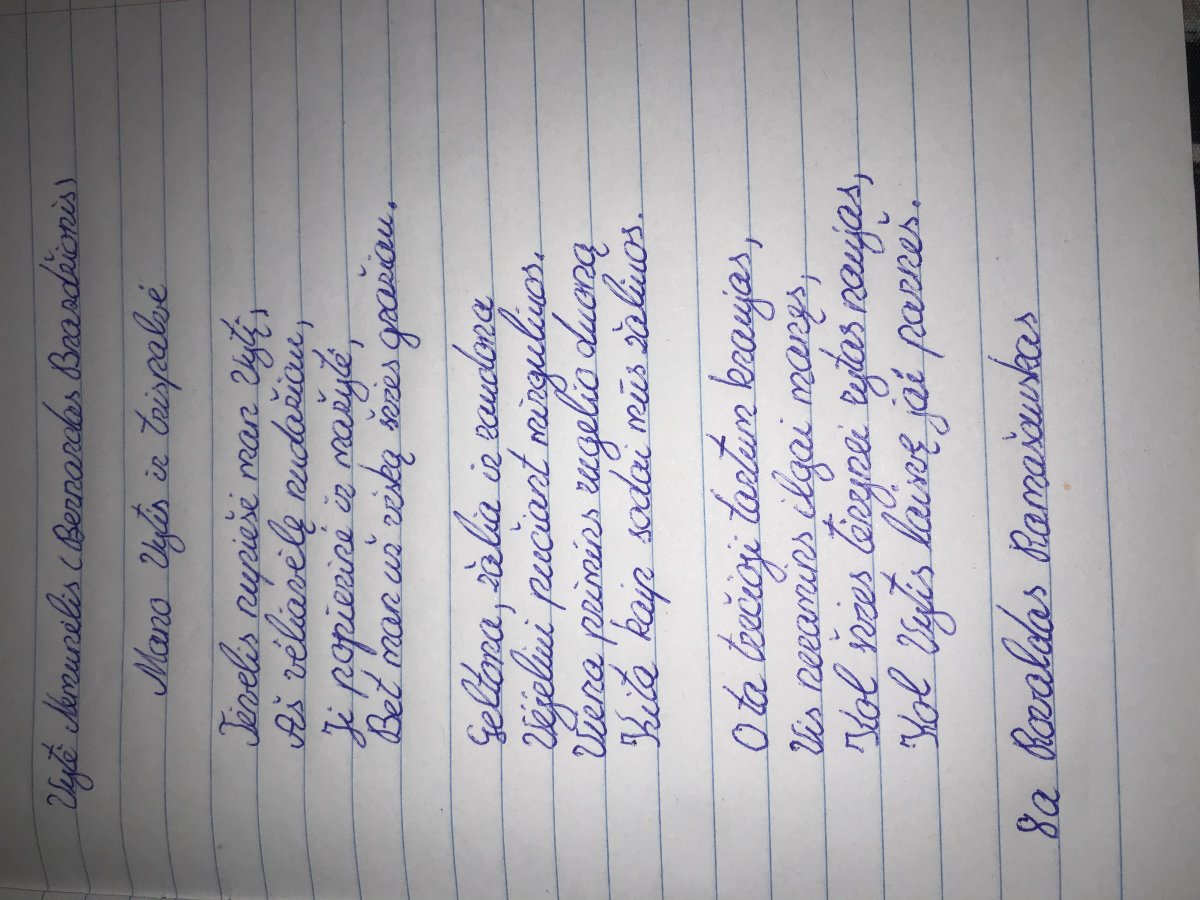 Vytė Nemunėlis (Bernardas Brazdžionis)
Mano Vytis ir trispalvė
Tėvelis nupiešė man Vytį,
Aš vėliavėlę nudažiau,
Ji popierinė ir mažytė,
Bet man už viską švies gražiau.
Geltona, žalia ir raudona
Vėjeliui pučiant mirguliuos.
Viena primins rugelio duoną
Kita kaip sodai mūs žaliuos.
O ta trečioji tartum kraujas,
Vis neramins ilgai manęs,
Kol švies tėvynei rytas naujas,
Kol Vytis laisvę jai parneš.
8a Ronaldas Ramašauskas